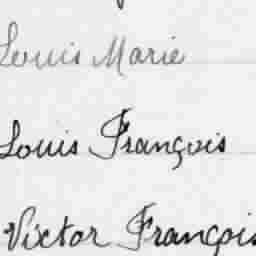 Louis Marie
Louis François
Victor François